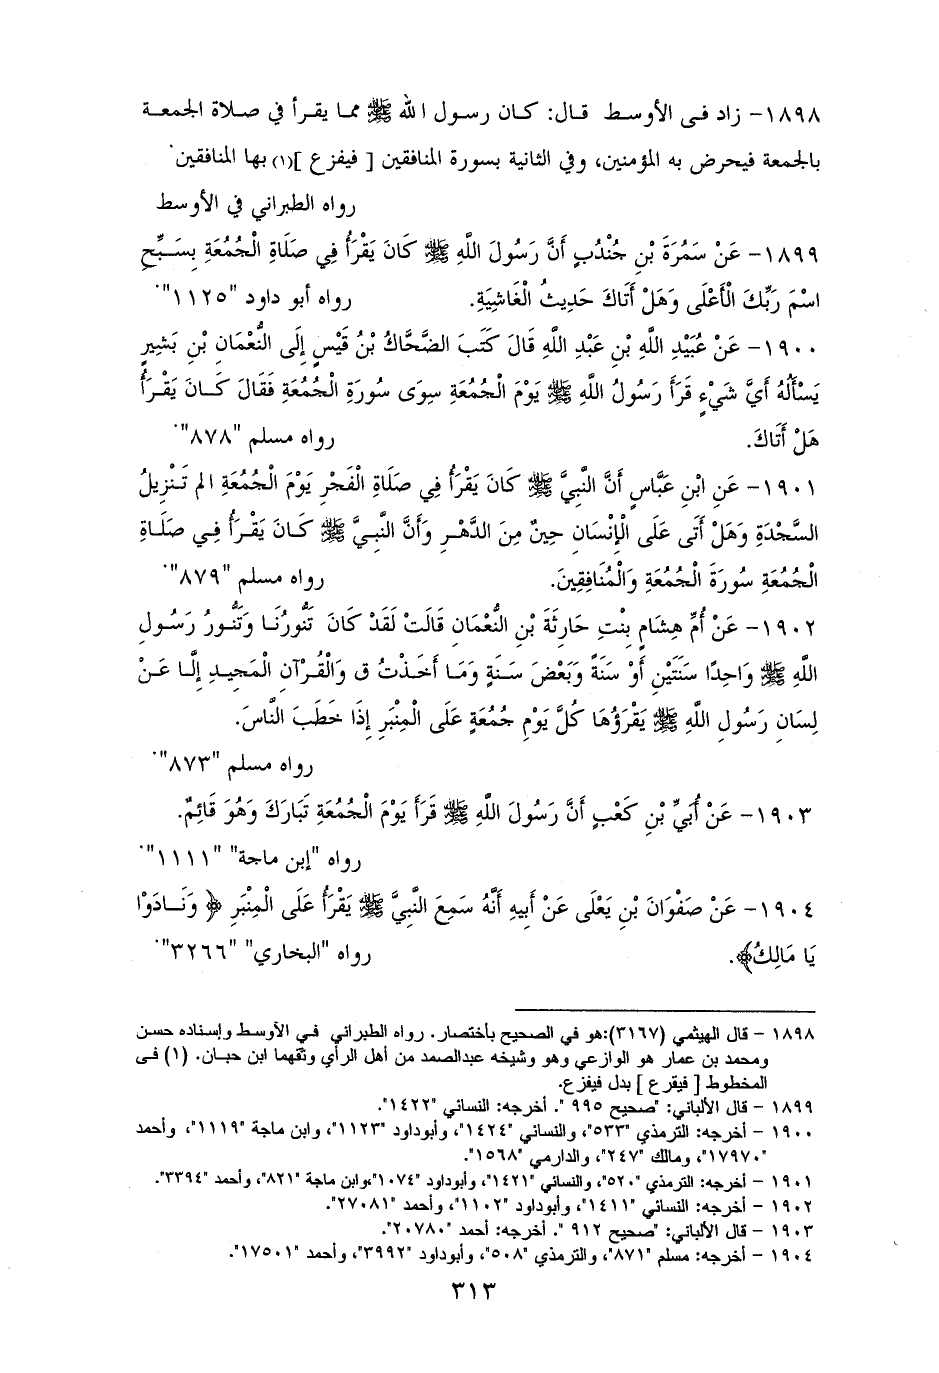 ١٨٩٨- زاد فى الأوسط قال: كان رسول الله ﷺ مما يقرأ في صلاة الجمعـة
بالجمعة فيحرض به المؤمنين، وفي الثانية بسورة المنافقين [ فيفزع ](١) بها المنافقين.
رواه الطبراني في الأوسط
١٨٩٩- عَنْ سَمُرَةَ بْنِ جُنْدُبٍ أَنَّ رَسُولَ اللَّهِ ﷺ كَانَ يَقْرَأُ فِي صَلَاةِ الْجُمُعَةِ بِسَـبِّحِ
اسْمَ رَبِّكَ الْأَعْلَى وَهَلْ أَتَاكَ حَدِيثُ الْغَاشِيَةِ. رواه أبو داود "١١٢٥".
١٩٠٠- عَنْ عُبَيْدِ اللَّهِ بْنِ عَبْدِ اللَّهِ قَالَ كَتَبَ الضَّحَّاكُ بْنُ قَيْسٍ إِلَى النُّعْمَانِ بْنِ بَشِيرٍ
يَسْأَلُهُ أَيَّ شَيْءٍ قَرَأَ رَسُولُ اللَّهِ ﷺ يَوْمَ الْجُمُعَةِ سِوَى سُورَةِ الْجُمُعَةِ فَقَالَ كَـانَ يَقْـرَأُ
هَلْ أَتَاكَ. رواه مسلم "٨٧٨".
١٩٠١- عَنِ ابْنِ عَبَّاسٍ أَنَّ النَّبِيَّ ﷺ كَانَ يَقْرَأُ فِي صَلَاةِ الْفَجْرِ يَوْمَ الْجُمُعَةِ الم تَـنْزِيلُ
السَّجْدَةِ وَهَلْ أَتَى عَلَى الْإِنْسَانِ حِينٌ مِنَ الدَّهْـرِ وَأَنَّ النَّبِـيَّ ﷺ كَـانَ يَقْـرَأُ فِـي صَلَـاةِ
الْجُمُعَةِ سُورَةَ الْجُمُعَةِ وَالْمُنَافِقِينَ. رواه مسلم "٨٧٩".
١٩٠٢- عَنْ أُمِّ هِشَامٍ بِنْتِ حَارِثَةَ بْنِ النُّعْمَانِ قَالَتْ لَقَدْ كَانَ تَنُّورُنَـا وَتَنُّـورُ رَسُـولِ
اللَّهِ ﷺ وَاحِدًا سَنَتَيْنِ أَوْ سَنَةً وَبَعْضَ سَنَةٍ وَمَـا أَخَـذْتُ ق وَالْقُـرْآنِ الْمَجِيـدِ إِلَّـا عَـنْ
لِسَانِ رَسُولِ اللَّهِ ﷺ يَقْرَؤُهَا كُلَّ يَوْمِ جُمُعَةٍ عَلَى الْمِنْبَرِ إِذَا خَطَبَ النَّاسَ.
رواه مسلم "٨٧٣".
١٩٠٣- عَنْ أُبَيِّ بْنِ كَعْبٍ أَنَّ رَسُولَ اللَّهِ ﷺ قَرَأَ يَوْمَ الْجُمُعَةِ تَبَارَكَ وَهُوَ قَائِمٌ.
رواه "إبن ماجة" "١١١١".
١٩٠٤- عَنْ صَفْوَانَ بْنِ يَعْلَى عَنْ أَبِيهِ أَنَّهُ سَمِعَ النَّبِيَّ ﷺ يَقْرَأُ عَلَى الْمِنْبَرِ ﴿ وَنَـادَوْا
يَا مَالِكُ﴾. رواه "البخاري" "٣٢٦٦".
١٨٩٨ - قال الهيثمي (٣١٦٧):هو في الصحيح بأختصار. رواه الطبراني في الأوسط وإسناده حسن
ومحمد بن عمار هو الوازعي وهو وشيخه عبدالصمد من أهل الرأي وثقهما ابن حبان. (١) فى
المخطوط [ فيقرع ] بدل فيفزع.
١٨٩٩ - قال الألباني: "صحيح ٩٩٥ ". أخرجه: النسائي "١٤٢٢".
١٩٠٠ - أخرجه: الترمذي "٥٣٣"، والنسائي "١٤٢٤"، وأبوداود "١١٢٣"، وابن ماجة "١١١٩"، وأحمد
"١٧٩٧٠"، ومالك "٢٤٧"، والدارمي "١٥٦٨".
١٩٠١ - أخرجه: الترمذي "٥٢٠"، والنسائي "١٤٢١"، وأبوداود "١٠٧٤"،وابن ماجة "٨٢١"، وأحمد "٣٣٩٤".
١٩٠٢ - أخرجه: النسائي "١٤١١"، وأبوداود "١١٠٢"، وأحمد "٢٧٠٨١".
١٩٠٣ - قال الألباني: "صحيح ٩١٢ ". أخرجه: أحمد "٢٠٧٨٠".
١٩٠٤ - أخرجه: مسلم "٨٧١"، والترمذي "٥٠٨"، وأبوداود "٣٩٩٢"، وأحمد "١٧٥٠١".
٣١٣